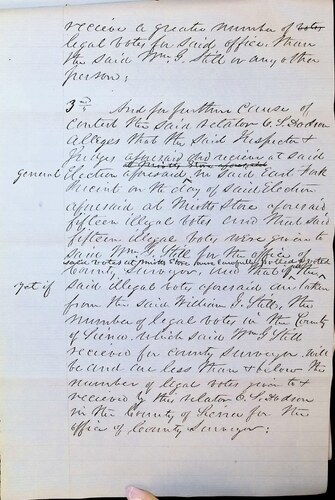 receive a greater number of votes
legal votes for said office than
the said Wm. G. Still or any other
person;
3rd And for further cause of
contest the said Relator O. S. Dodson
alleges that the said Inspector &
Judges aforesaid did receive at said
General
Election aforesaid in said East Fork
Precinct on the day of said Election
aforesaid at Store aforesaid
fifteen illegal votes and that said
fifteen illegal votes were given to
said Wm. G. Still for the office of
said votes at Store were
County Surveyor, and that
yet if
said illegal votes aforesaid are taken
from the said William G. Still, the
number of legal votes in the County
of which said Wm. G. Still
received for County Surveyor will
be and are less than & below the
number of legal votes given to &
received by this relator O. S. Dodson
in the County of for the
office of County Surveyor;